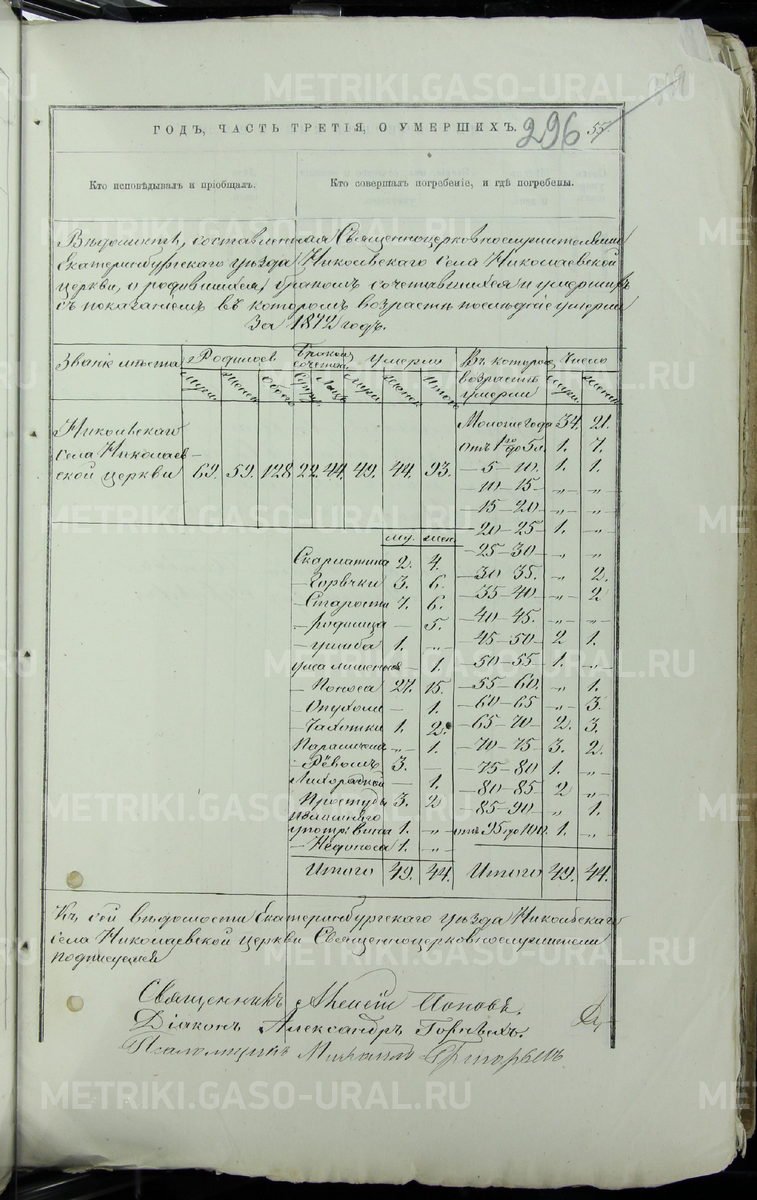 ГОДЪ, ЧАСТЬ ТРЕТІЯ, О УМЕРШИХЪ. 296 55.
Кто исповѣдывалъ и пріобщалъ. Кто совершалъ погребеніе, и гдѣ погребены.
Вѣдомость, составленная Священноцерковнослужителями
Екатеринбургскаго уѣзда Николаевской
церкви, о родившихся, бракомъ сочетавшихся и умершихъ
съ показаніемъ въ которомъ возрастѣ послѣдніе умерли
За 1872 годъ.
Званіе мѣста Родилось Умерло Въ которомъ возрастѣ умерли Число
села Николаевской церкви 69. 59. 128 22. 44. 49. 44. 93.
Моложе года 34. 21.
Отъ 1го до 5 л. 1. 7.
— 5 — 10. 1. 1.
— 10 — 15 — „ „
— 15 — 20 — „ „
— 20 — 25 — 1. „
— 25 — 30 — „ „
— 30 — 35. „ 2.
— 35 — 40 — „ 2
— 40 — 45. „ „
— 45 — 50 — 2 1.
— 50 — 55 — 1. „
— 55 — 60. „ 1.
— 60 — 65 „ 3.
— 65 — 70 — 2. 3.
— 70 — 75 — 3. 2.
— 75 — 80 1. „
— 80 — 85 — 2 „
— 85 — 90 — „ 1.
отъ 95 до 100. 1. „
Итого 49. 44.
му. жен.
Скарлатина 2. 4.
— Горячки 3. 6.
— Старости 7. 6.
— родимца — 5.
— ушиба 1. „
— 1.
— Поноса 27. 15.
— Опухоли — 1.
— Чахотки 1. 2.
Параличемъ „ 1.
3. —
Лихорадкой — 1.
Простуды 3. 2
1. „
— Недоноса 1. „
Итого 49. 44.
Къ сей вѣдомости Екатеринбургскаго уѣзда
села Николаевской церкви Священноцерковнослужители
подписуемся
Священникъ Алексій Поповъ.
Діаконъ Александръ Горныхъ.
Псаломщикъ Михаилъ Григорьевъ
METRIKI.GASO-URAL.RU